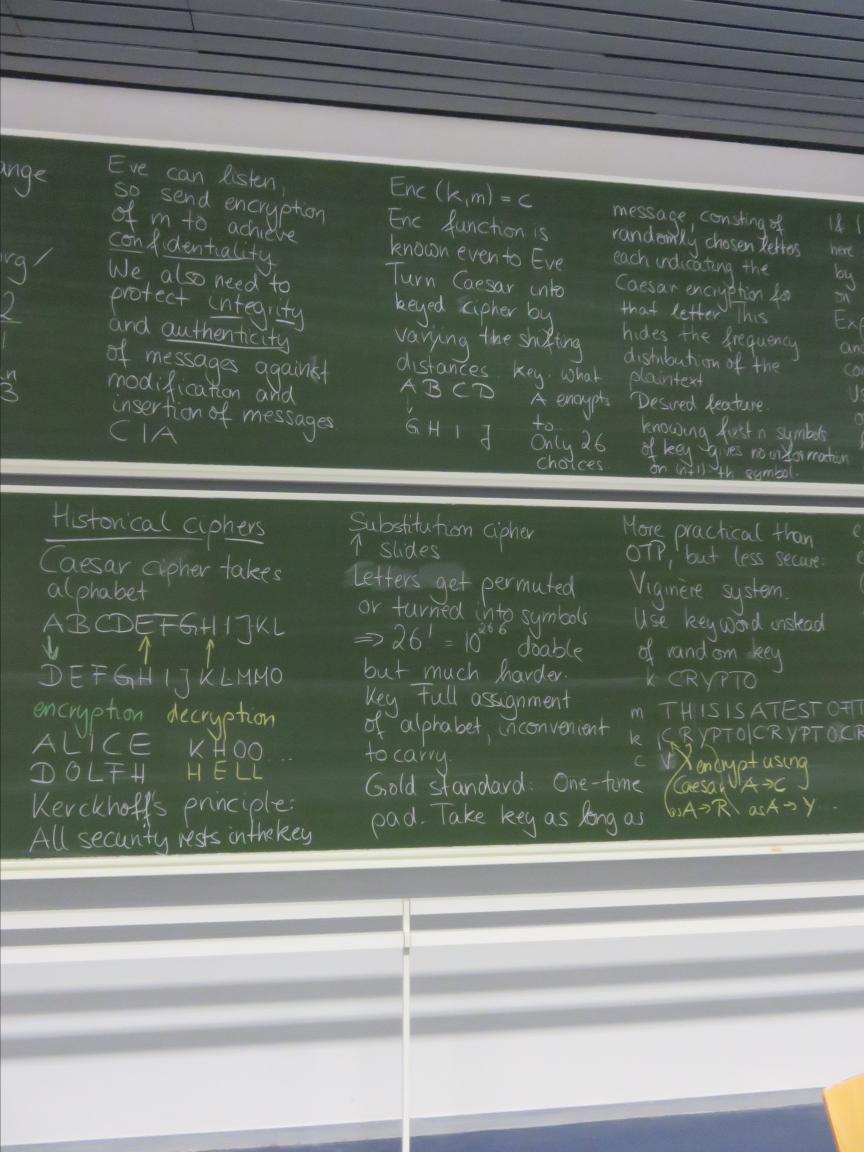 ange
org/
2
1
n
3
Eve can listen,
so send encryption
of m to achieve
confidentiality.
We also need to
protect integrity
and authenticity
of messages against
modification and
insertion of messages
CIA
Enc (k,m) = c
Enc function is
known even to Eve
Turn Caesar into
keyed cipher by
varying the shifting
distances. Key: what
A B C D A encrypts
↓ to.
G H I J Only 26
choices.
message, consting of
randomly chosen letters
each indicating the
Caesar encryption for
that letter This
hides the frequency
distribution of the
plaintext
Desired feature:
knowing first n symbols
of key gives no information
on (n+1)-th symbol.
here
by
on
Exp
and
Historical ciphers
Caesar cipher takes
alphabet
ABCDEFGHIJKL
DEFGHIJKLMMO
encryption decryption
ALICE KHOO...
DOLFH HELL
Kerckhoff's principle:
All security rests in the key
Substitution cipher
↑ slides
Letters get permuted
or turned into symbols
⇒ 26! = 10^26.6 doable
but much harder.
Key Full assignment
of alphabet, inconvenient
to carry.
Gold standard: One-time
pad. Take key as long as
More practical than
OTP, but less secure:
Viginère system.
Use keyword instead
of random key
k CRYPTO
m THISISATESTOFT
k CRYPTO|CRYPTOCR
c VX encrypt using
Caesar A→C
as A→R as A→Y...